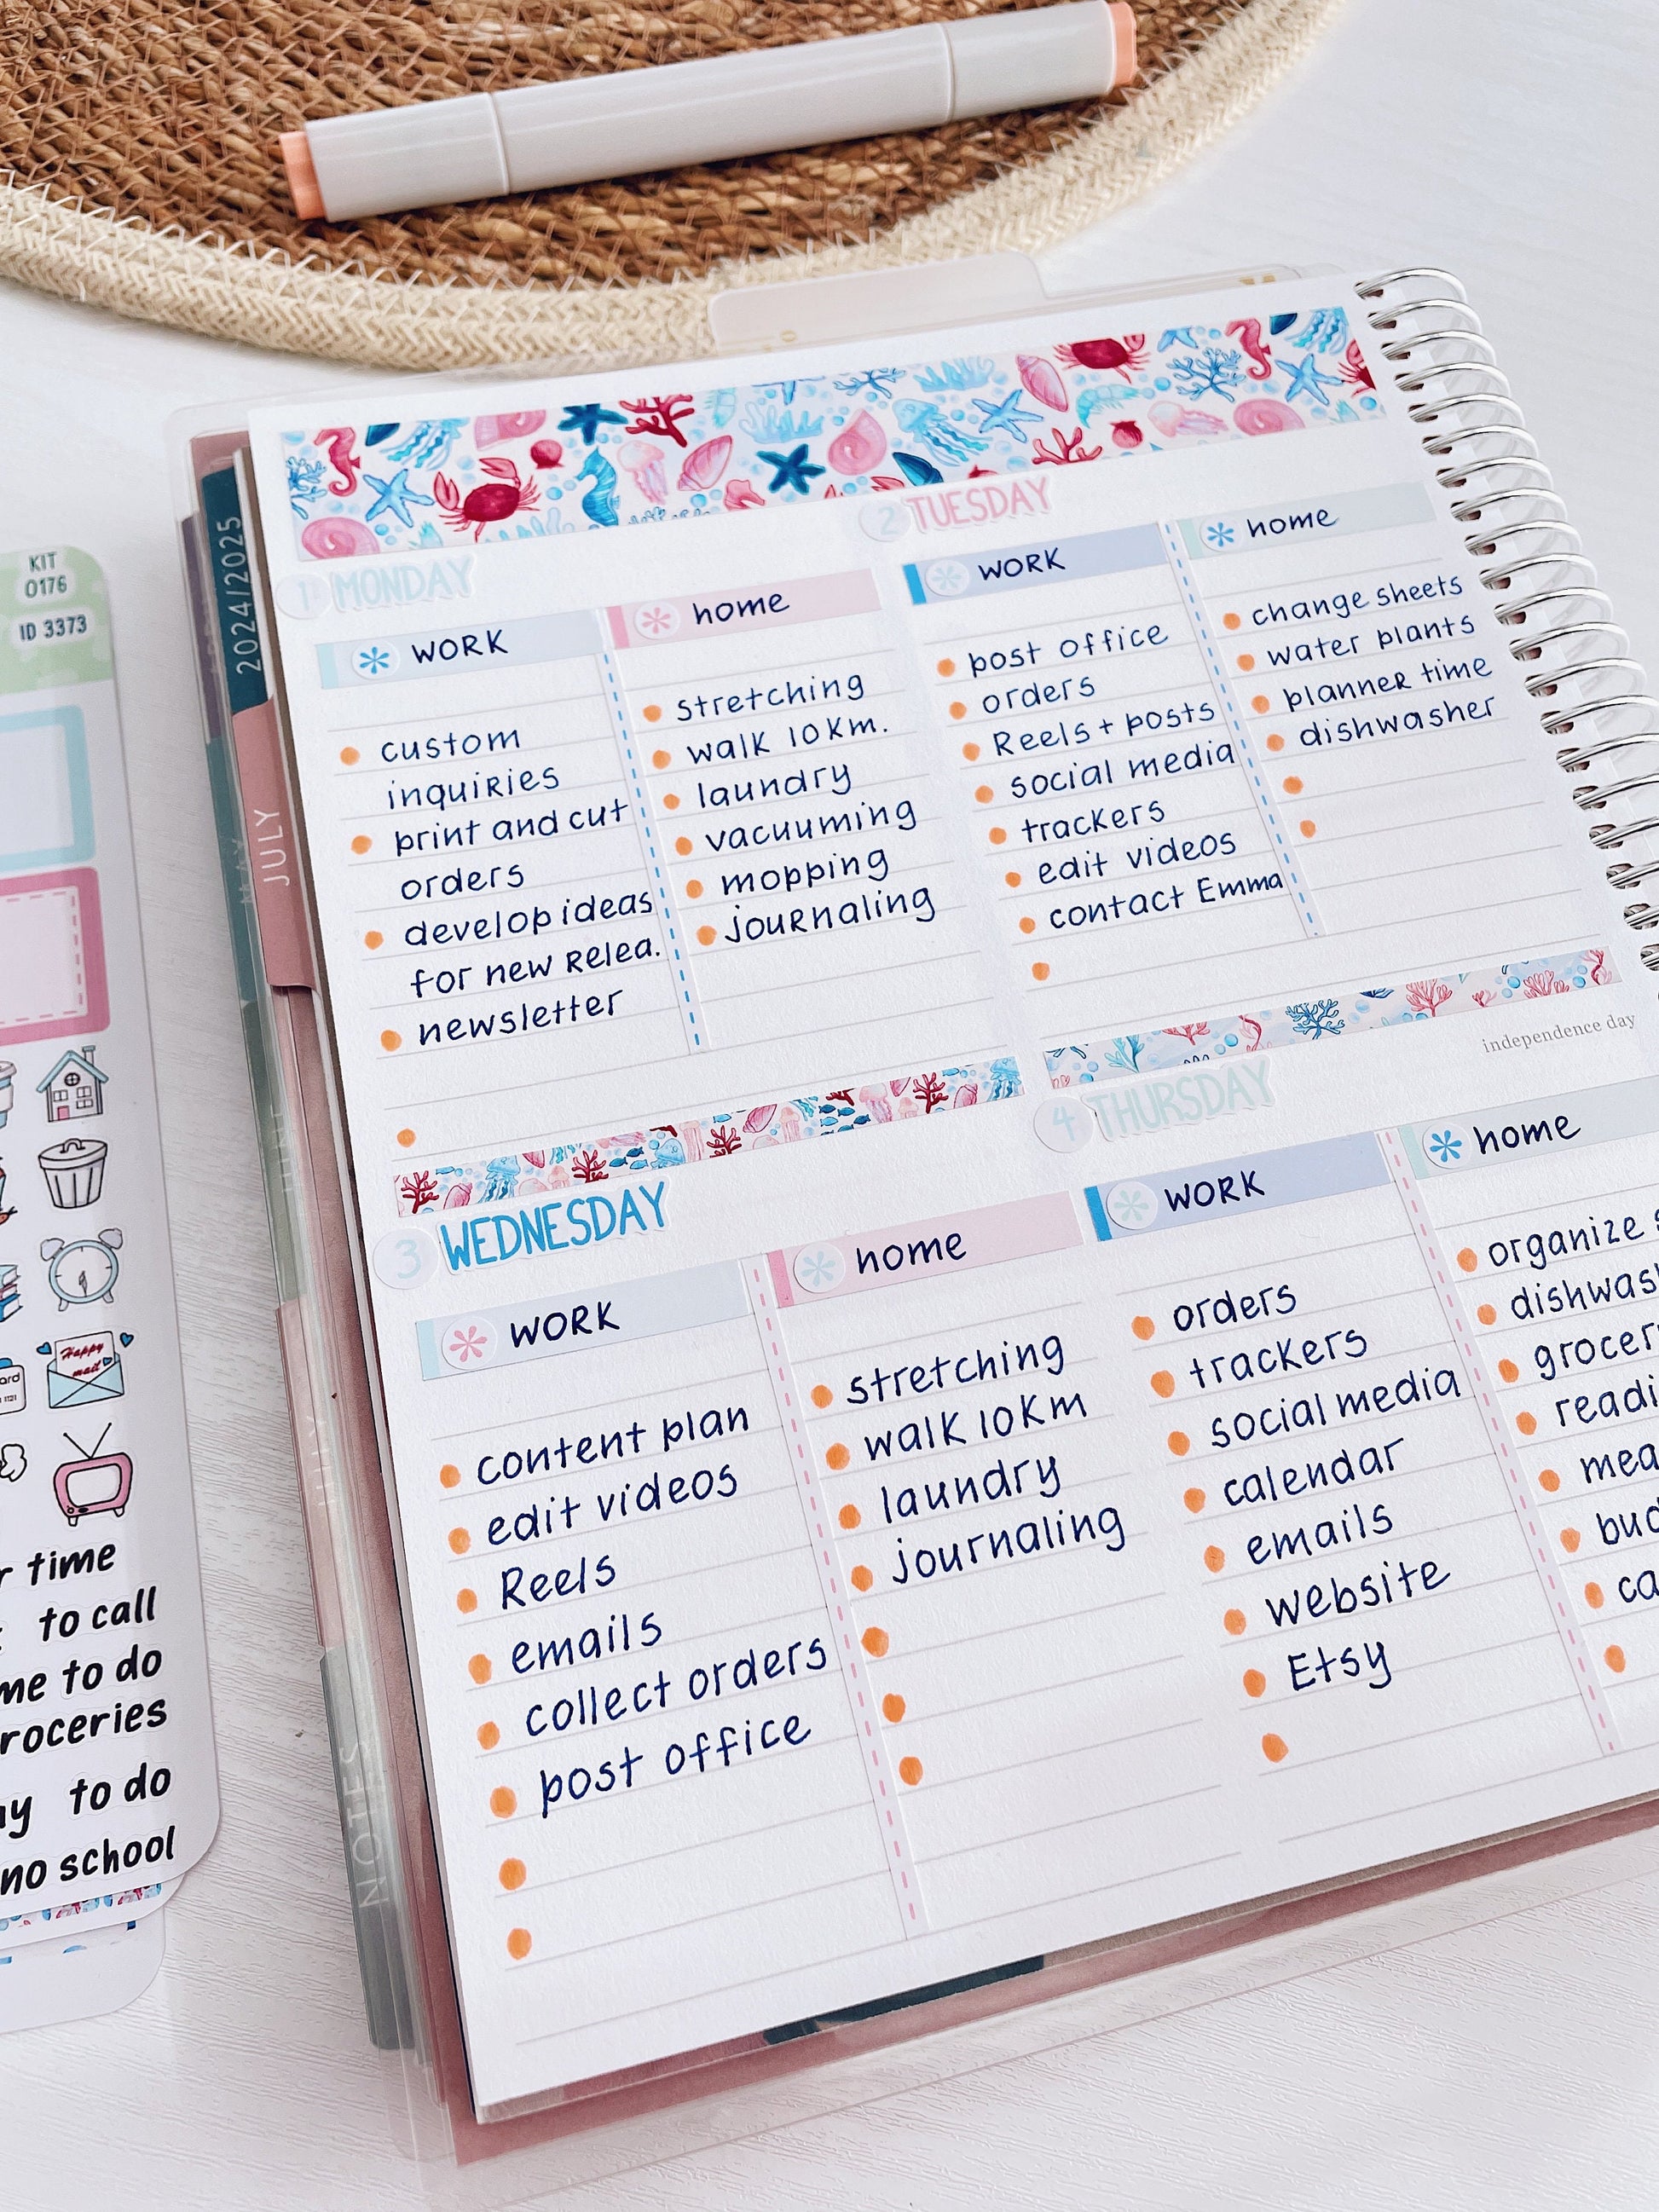 KIT
0176
ID 3373
Happy
mail
time
to call
to do
to do
no school
2024/2025
MAY
JULY
JUNE
JULY
NOTES
1 MONDAY
WORK
custom
inquiries
print and cut
orders
develop ideas
for new Relea.
newsletter
home
stretching
walk 10km.
laundry
vacuuming
mopping
journaling
2 TUESDAY
WORK
post office
orders
Reels + posts
social media
trackers
edit videos
contact Emma
home
change sheets
water plants
planner time
dishwasher
3 WEDNESDAY
WORK
content plan
edit videos
Reels
emails
collect orders
post office
home
stretching
walk 10km
laundry
journaling
independence day
4 THURSDAY
WORK
orders
trackers
social media
calendar
emails
website
Etsy
home
organize